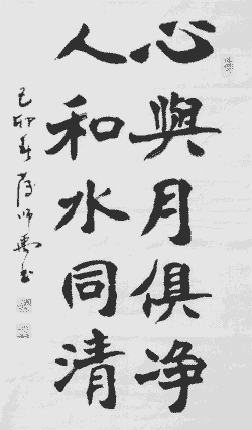 心與月俱净
人和水同清
己卯春 师 书